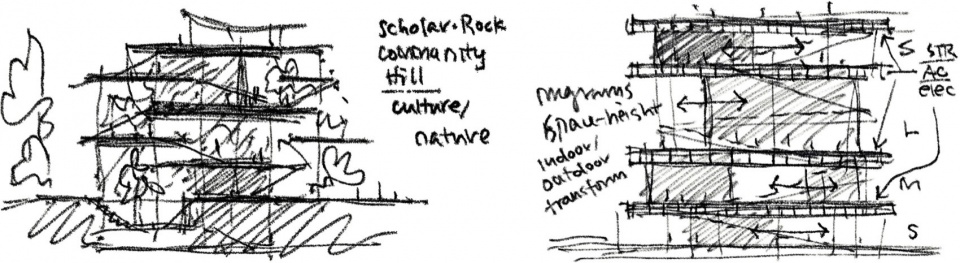 scholar·Rock
community
Hill
culture/
nature
programs
space-height
indoor/
outdoor
transform
S
STR
AC
elec
L
M
S